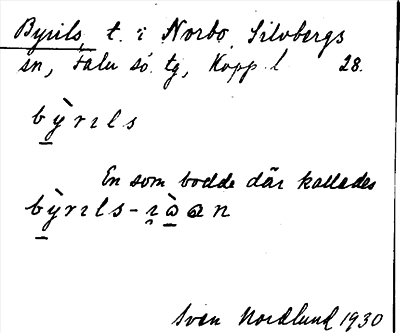 Byrils, t. i Norbo, Silvbergs
sn, Falu sö. tg, Kopp. l 28.
bỳ̠rıls
En som bodde där kallades
bỳ̠rıls-
Sven Nordlund 1930